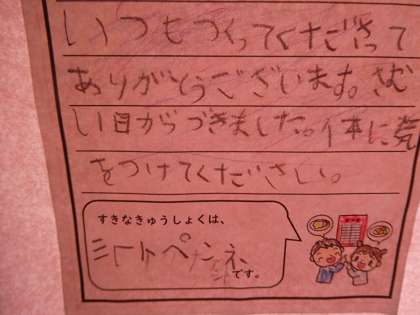 いつもつくってくださって
ありがとうございます。さむ
い日がつづきました。体に気
をつけてください。
すきなきゅうしょくは、
ミートペンネ
です。